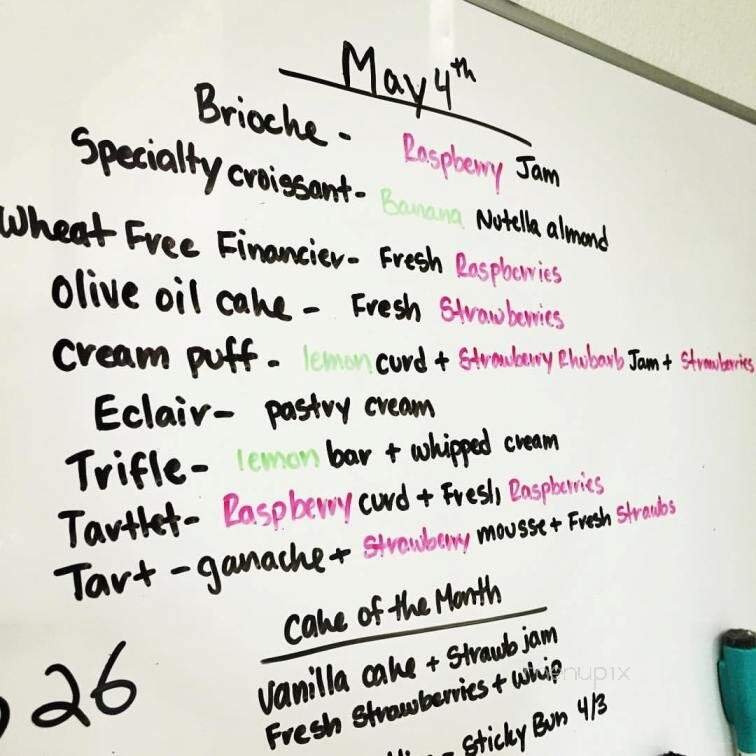 May 4th
Brioche - Raspberry Jam
Specialty croissant - Banana Nutella almond
Wheat Free Financier - Fresh Raspberries
Olive oil cake - Fresh Strawberries
Cream puff - lemon curd + Strawberry Rhubarb Jam + Strawberries
Eclair - pastry cream
Trifle - lemon bar + whipped cream
Tartlet - Raspberry curd + Fresh Raspberries
Tart - ganache + Strawberry mousse + Fresh Strawbs
Cake of the Month
Vanilla cake + Strawb jam
Fresh Strawberries + whip
menupix
26
- Sticky Bun 4/3